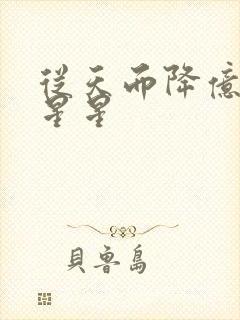 從天而降億
星星
貝魯島